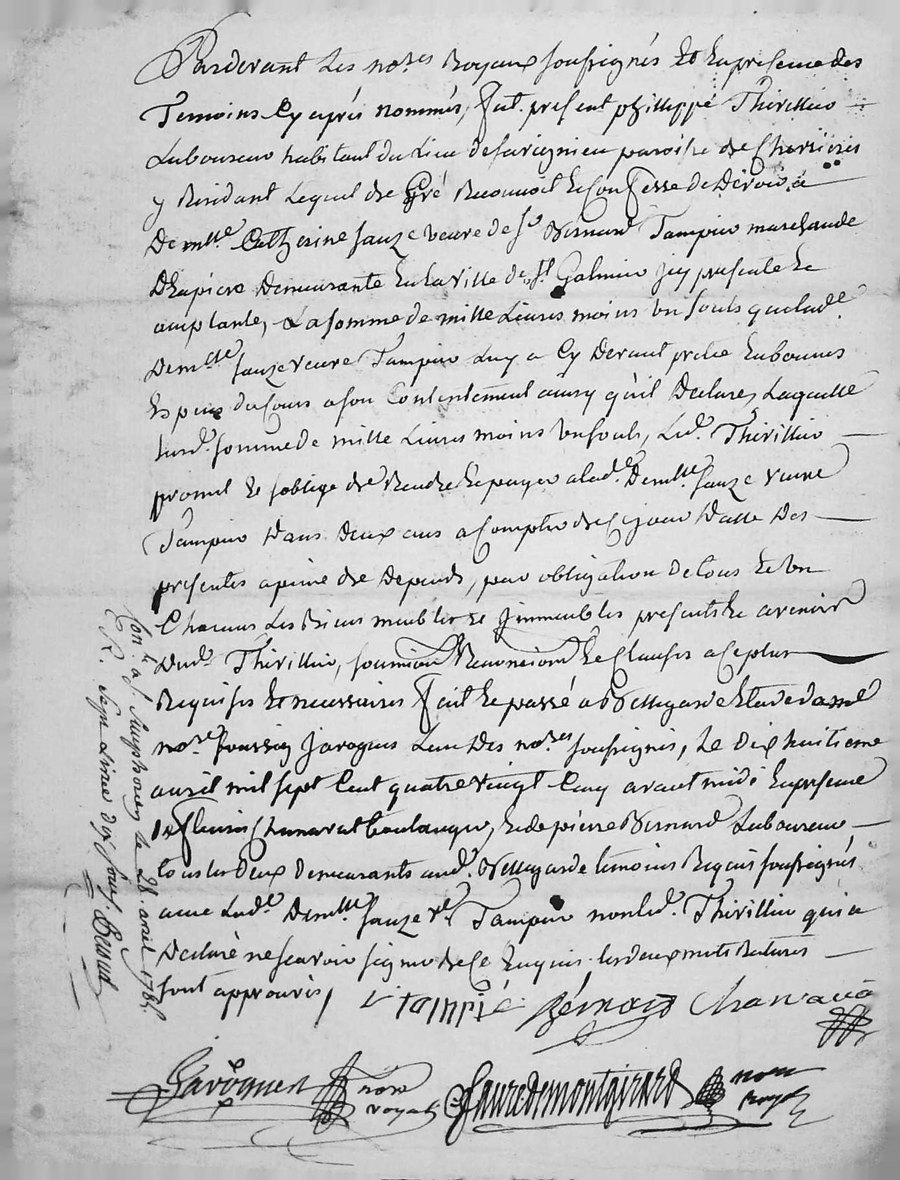 Pardevant Les no.res Royaux soussignés Et En presence des
Temoins Cy après nommés, fut present philippe Thivillier
Laboureur habitant du Lieu de savignieu paroisse de Chevrières
y Residant Lequel de Gré Reconnoit Et Confesse de Devoir à
Demlle Catherine fauze veuve de sr Bernard Tampier marchande
Drapière Demeurante En La ville de St Galmier jcy presente Et
acceptante, La somme de mille Livres moins un souls que lade
Demlle fauze veuve Tampier Luy a Cy Devant pretée En bonnes
Espèces du Cours a son Contentement ainsy qu'il Declare, Laquelle
susd. somme de mille Livres moins un souls, Led. Thivillier
promet Et soblige de Rendre Et payer a lade Demlle fauze veuve
Tampier Dans Deux ans a Compter de Ce jour Datte Des
presentes a peine de Depends, par obligation de tous Et un
Chacuns Les Biens meubles Et jmmeubles presents Et avenir
Dud. Thivillier, soumions Renoncions Et Clauses a Ce plus
Requises Et necessaires fait Et passé a Bellegarde Etude de me
no.re Javogues L'un Des no.res soussignés, Le Dix huitieme
avril mil sept Cent quatre vingt Cinq avant midi En presence
De fleuris Chanavat boulanger, Et de pierre Bernard Laboureur
tous les deux Demeurants aud. Bellegarde temoins Requis soussignés
avec Lade Demlle fauze ve Tampier non led. Thivillier qui a
Declaré ne scavoir signer de Ce Enquis. les deux mots Raturés
sont approuvés,
v tampié Bérnard Chanavat
Javogues nore royal
fauredemontgirard nore Royal
Con.lé à St Simphorien le 28. avril 1785
R. sept Livres dix sous. Besaud